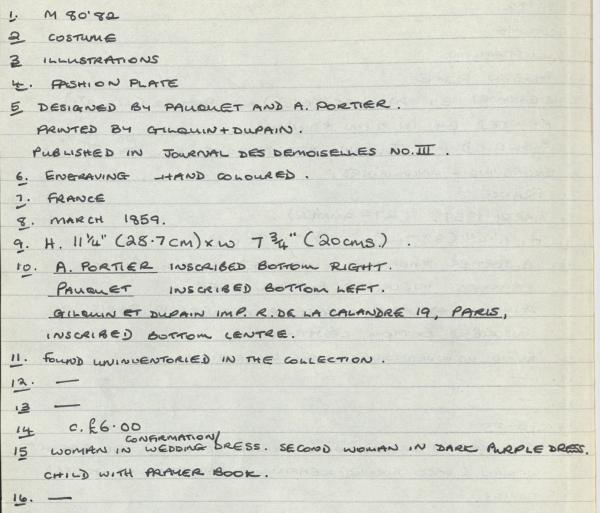 1. M 80'82
2 COSTUME
3 ILLUSTRATIONS
4. FASHION PLATE
5 DESIGNED BY PAUQUET AND A. PORTIER.
PRINTED BY GILQUIN + DUPAIN.
PUBLISHED IN JOURNAL DES DEMOISELLES NO. III.
6. ENGRAVING - HAND COLOURED.
7. FRANCE
8. MARCH 1859.
9. H. 11 1/4" (28.7cm) x W 7 3/4" (20cms.).
10. A. PORTIER INSCRIBED BOTTOM RIGHT.
PAUQUET INSCRIBED BOTTOM LEFT.
GILQUIN ET DUPAIN IMP. R. DE LA CALANDRE 19, PARIS,
INSCRIBED BOTTOM CENTRE.
11. FOUND UNINVENTORIED IN THE COLLECTION.
12. —
13 —
14 c. £6.00
15 WOMAN IN CONFIRMATION/WEDDING DRESS. SECOND WOMAN IN DARK PURPLE DRESS.
CHILD WITH PRAYER BOOK.
16. —